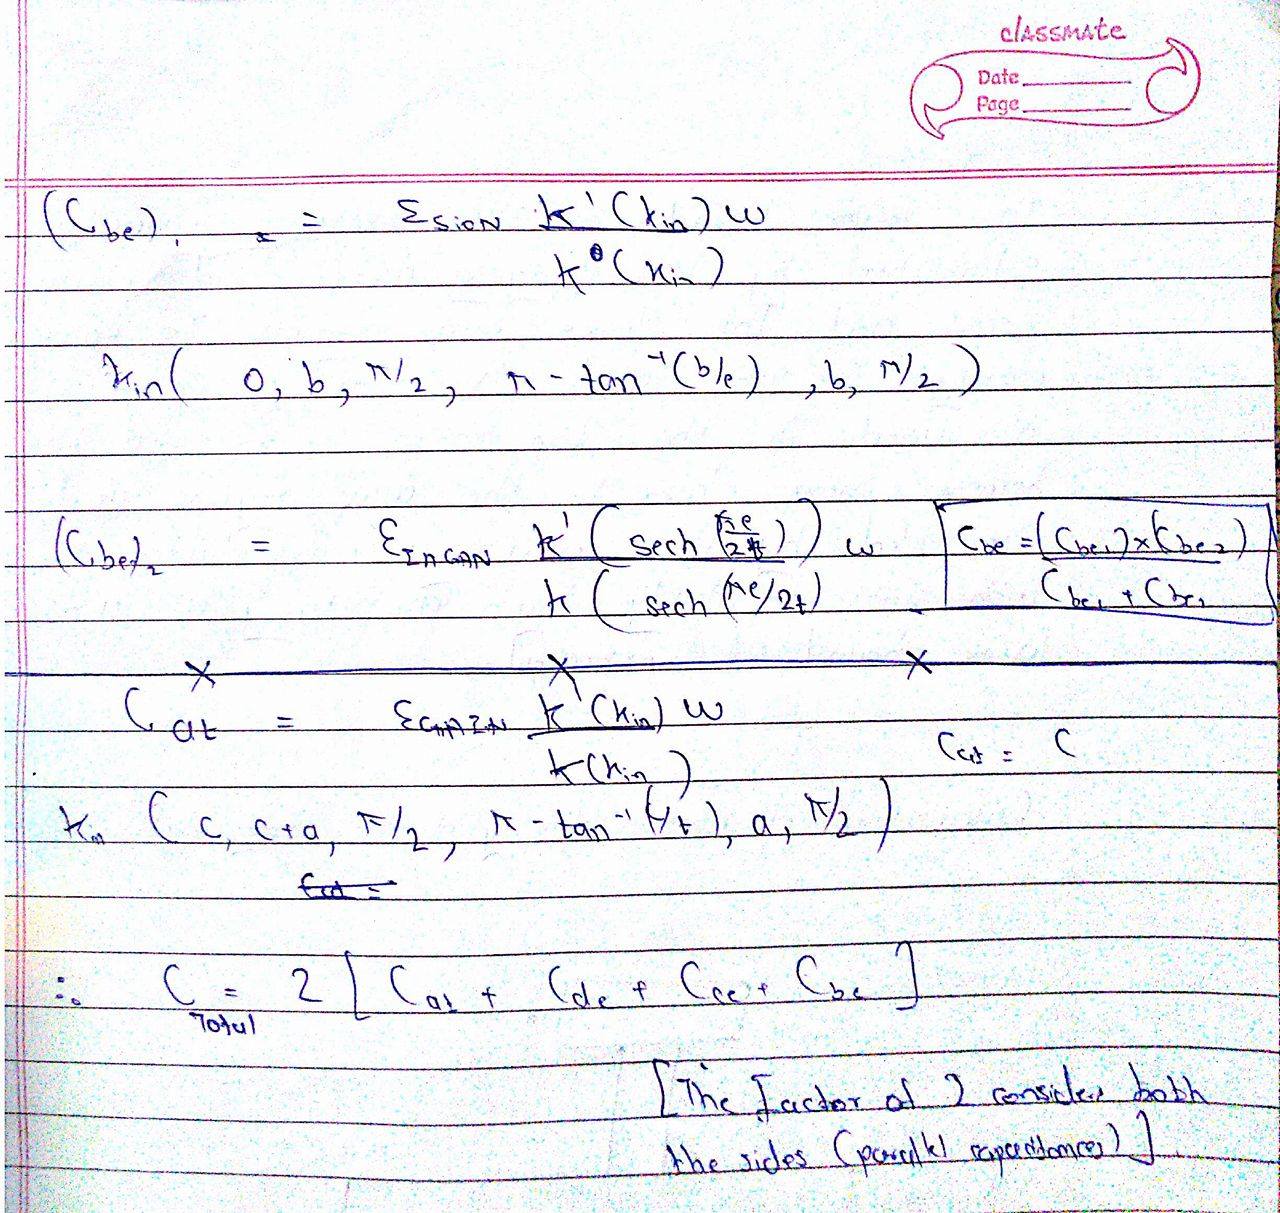 classmate
Date
Page
(Cbe)1 = εSiON K'(kin) w / K(kin)
kin( 0, b, π/2, π - tan⁻¹(b/e), b, π/2 )
(Cbe)2 = εInGaN K'( sech (πe/2t) ) w / K( sech (πe/2t)
Cbe = (Cbe1) x (Cbe2) / Cbe1 + Cbe2
Cat = K'(kin) w / K(kin)
Cat = C
kin ( c, c+a, π/2, π - tan⁻¹( /t), a, π/2 )
∴ CTotal = 2 [ Cat + Cde + Cce + Cbe ]
[The Factor of 2 considers both
the sides (parallel capacitances)]